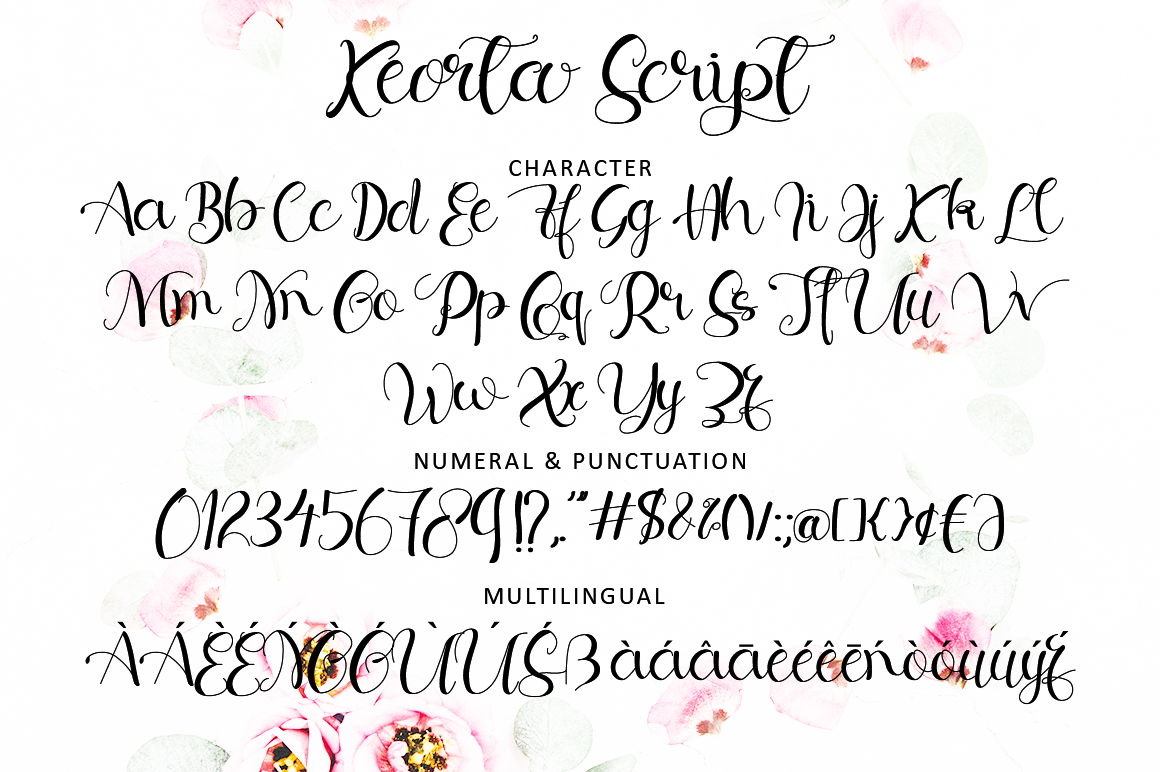 Keorta Script
CHARACTER
Aa Bb Cc Dd Ee Ff Gg Hh Ii Jj Kk Ll
Mm Nn Oo Pp Qq Rr Ss Tt Uu Vv
Ww Xx Yy Zz
NUMERAL & PUNCTUATION
0123456789!?,.'"#$&%()/:;@[]{}¢€
MULTILINGUAL
ÀÁÈÉŃÒÓÙÚŚßàáâāèéêēńòóùúýź